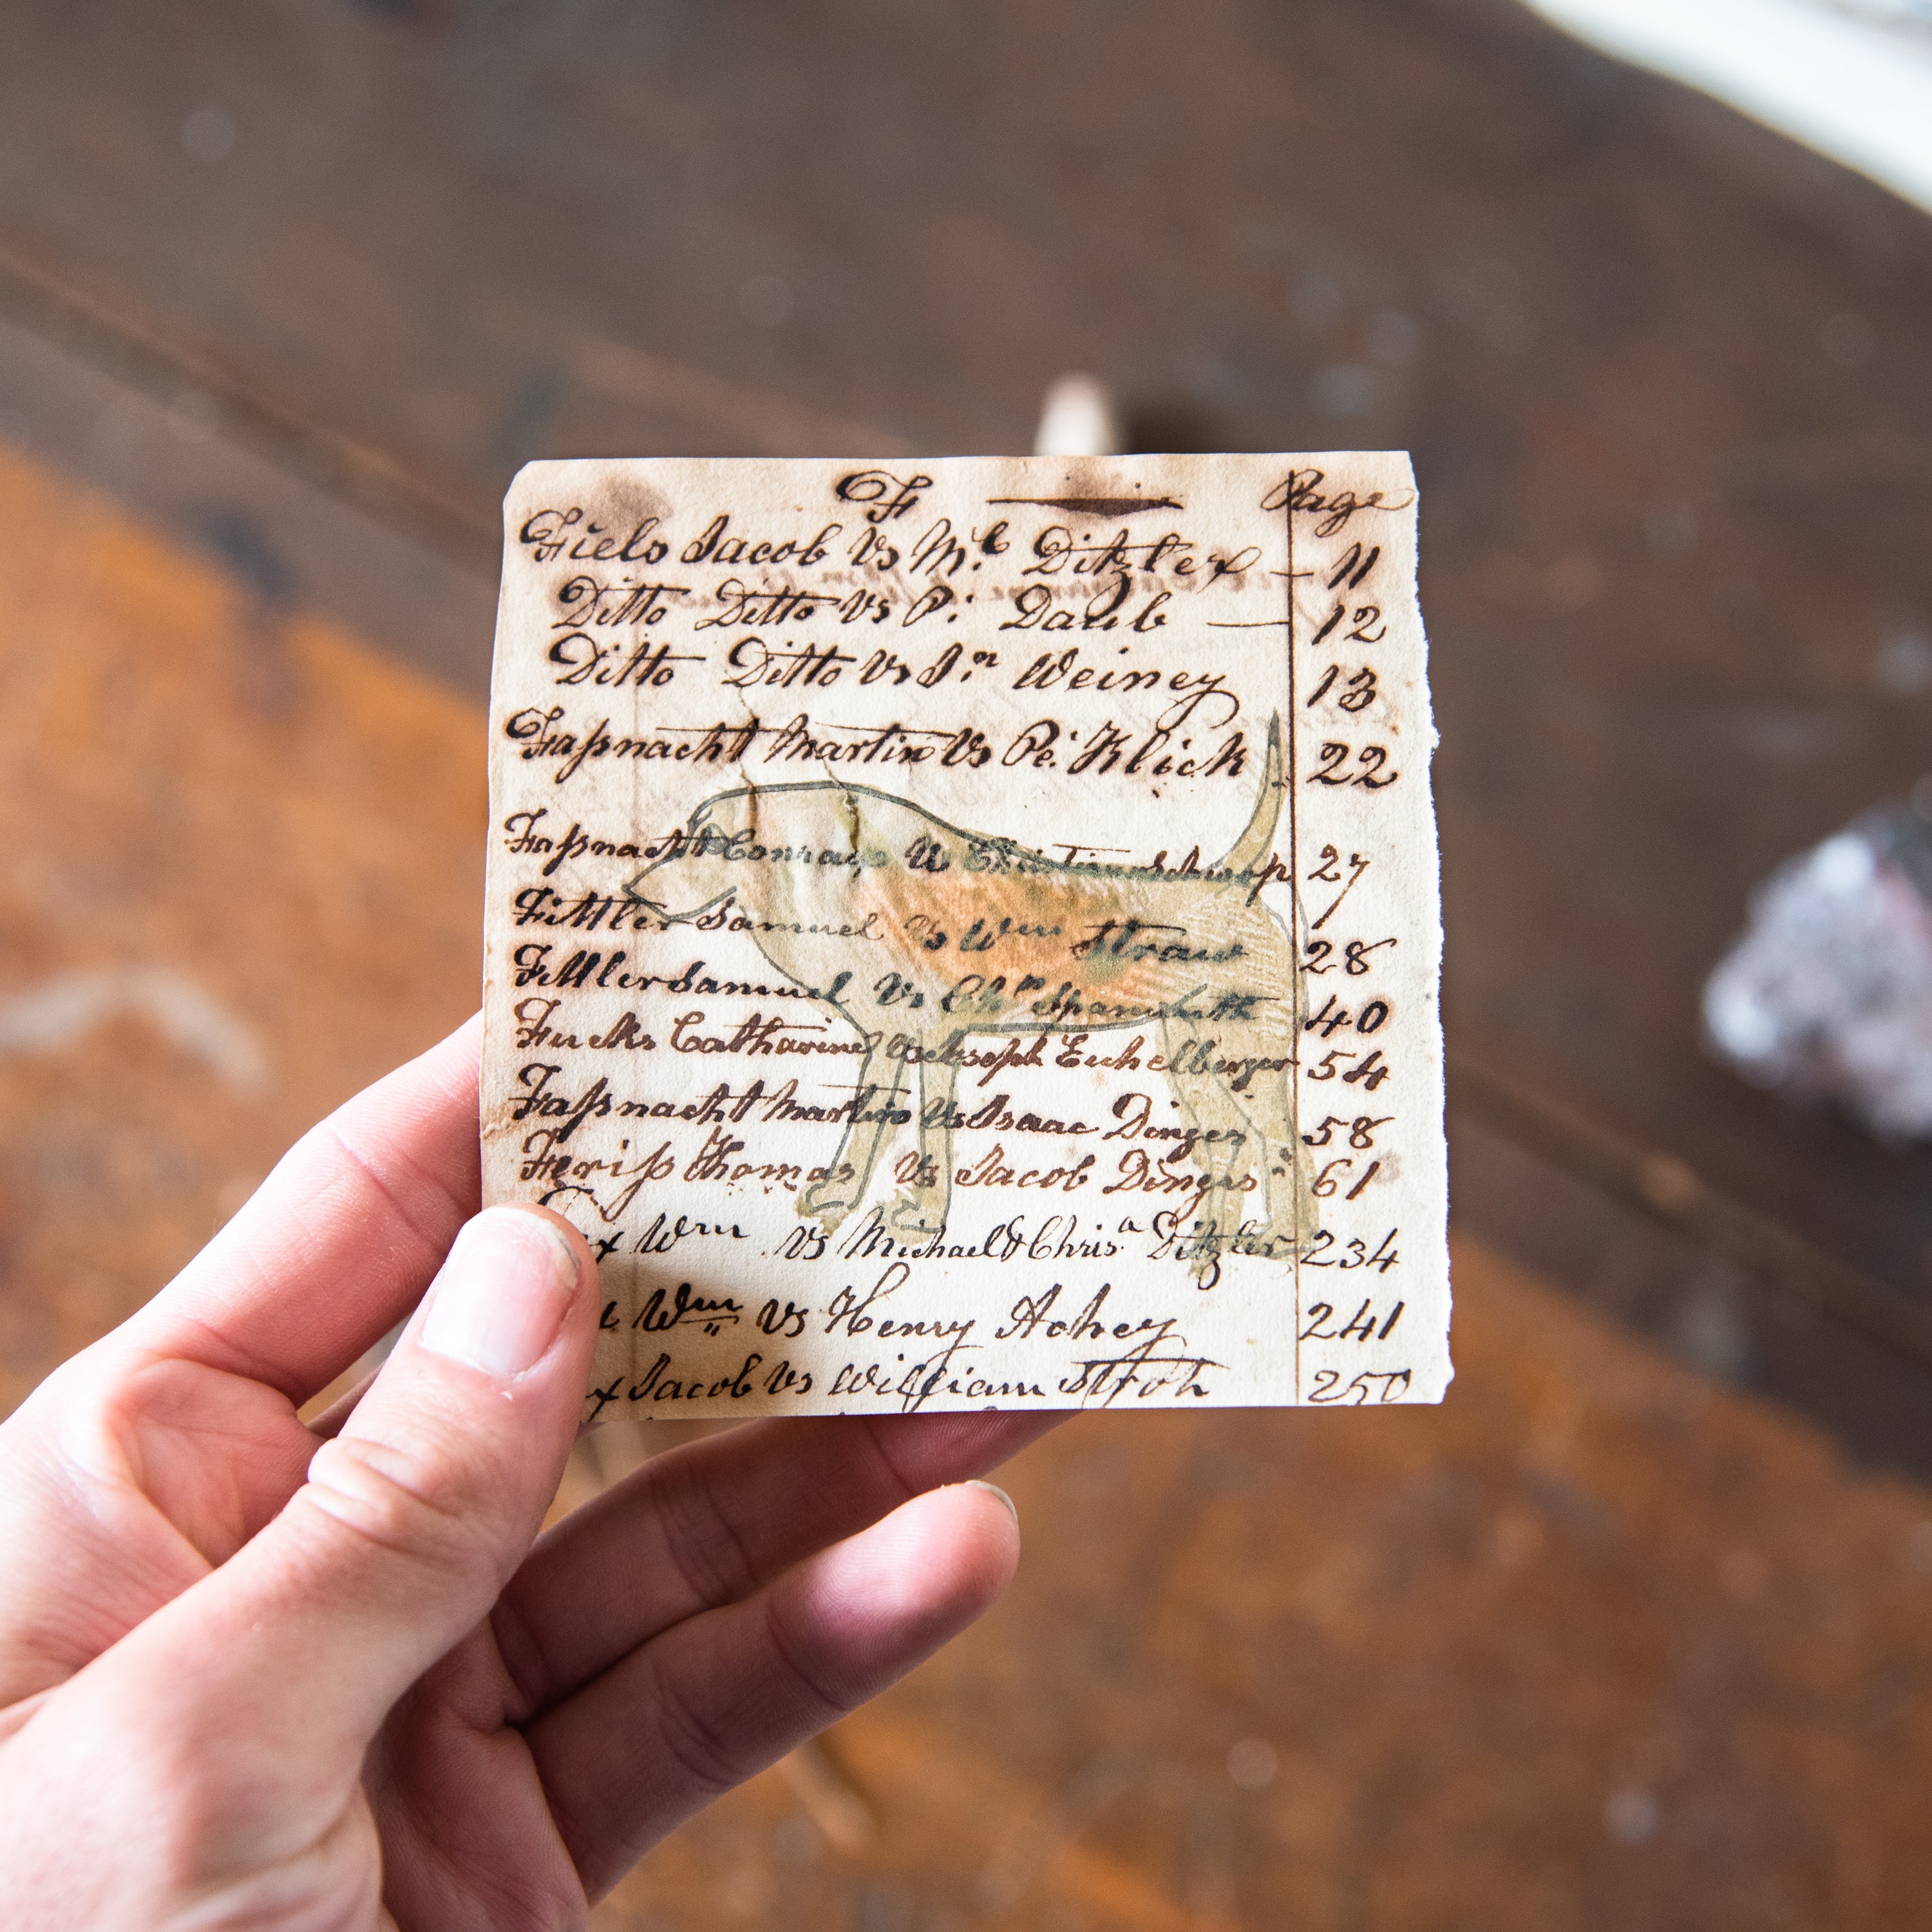 F — Page
Fiels Jacob Vs Ml. Ditzler — 11
Ditto Ditto Vs P: Daub — 12
Ditto Ditto Vs Jn Weiney 13
Faßnacht Martin Vs Pe: Klick 22
Faßnacht Vs 27
Fittler Samuel Vs Wm Straw 28
Fittler Samuel Vs Chn Spanuhth 40
Fucks Catharine Vs Joseph Euchelberger 54
Faßnacht Martin Vs Isaac Dinges 58
Feriß Thomas Vs Jacob Dinges 61
x Wm Vs Michael & Chrisa Ditzler 234
Wm Vs Henry Achey 241
x Jacob Vs William Stroh 250